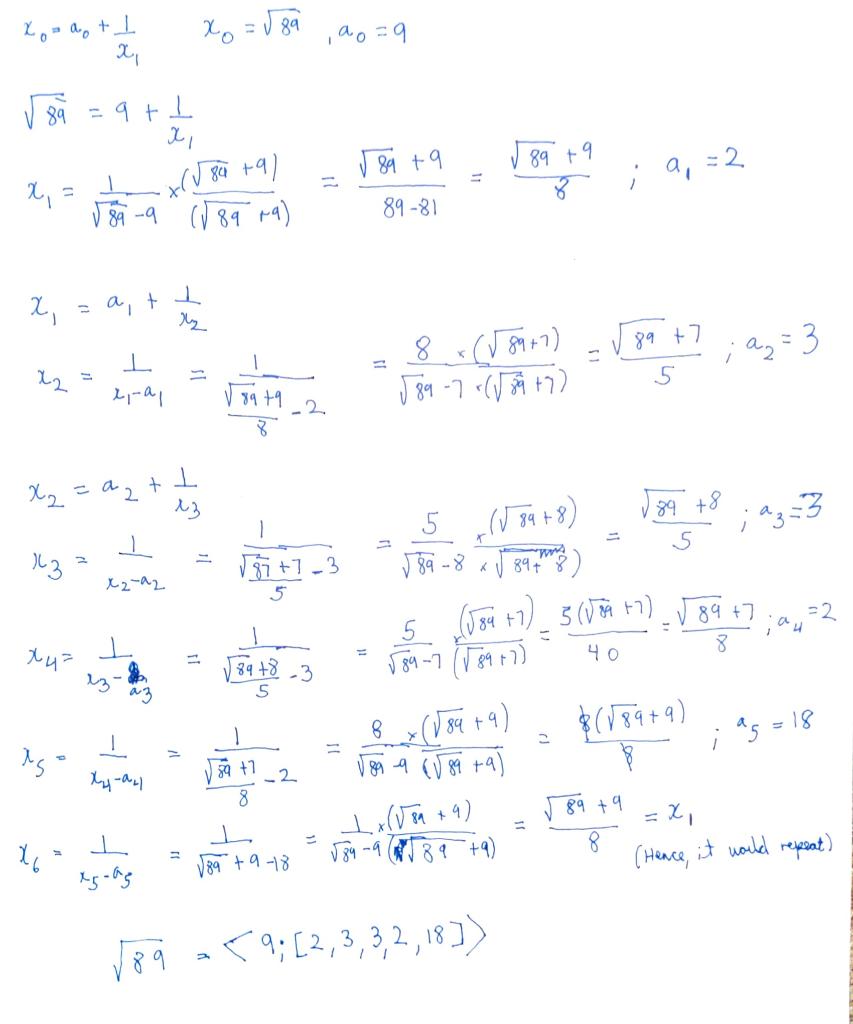 x₀ = a₀ + 1/x₁   x₀ = √89 , a₀ = 9
√89 = 9 + 1/x₁
x₁ = 1/(√89 - 9) × (√89 + 9)/(√89 + 9) = (√89 + 9)/(89 - 81) = (√89 + 9)/8 ; a₁ = 2
x₁ = a₁ + 1/x₂
x₂ = 1/(x₁ - a₁) = 1/((√89 + 9)/8 - 2) = 8/(√89 - 7) × (√89 + 7)/(√89 + 7) = (√89 + 7)/5 ; a₂ = 3
x₂ = a₂ + 1/x₃
x₃ = 1/(x₂ - a₂) = 1/((√87 + 7)/5 - 3) = 5/(√89 - 8) × (√89 + 8)/(√89 + 8) = (√89 + 8)/5 ; a₃ = 3
x₄ = 1/(x₃ - a₃) = 1/((√89 + 8)/5 - 3) = 5/(√89 - 7) × (√89 + 7)/(√89 + 7) = 5(√89 + 7)/40 = (√89 + 7)/8 ; a₄ = 2
x₅ = 1/(x₄ - a₄) = 1/((√89 + 7)/8 - 2) = 8/(√89 - 9) × (√89 + 9)/(√89 + 9) = 8(√89 + 9)/8 ; a₅ = 18
x₆ = 1/(x₅ - a₅) = 1/(√89 + 9 - 18) = 1/(√89 - 9) × (√89 + 9)/(√89 + 9) = (√89 + 9)/8 = x₁
(Hence, it would repeat)
√89 = <9; [2, 3, 3, 2, 18]>